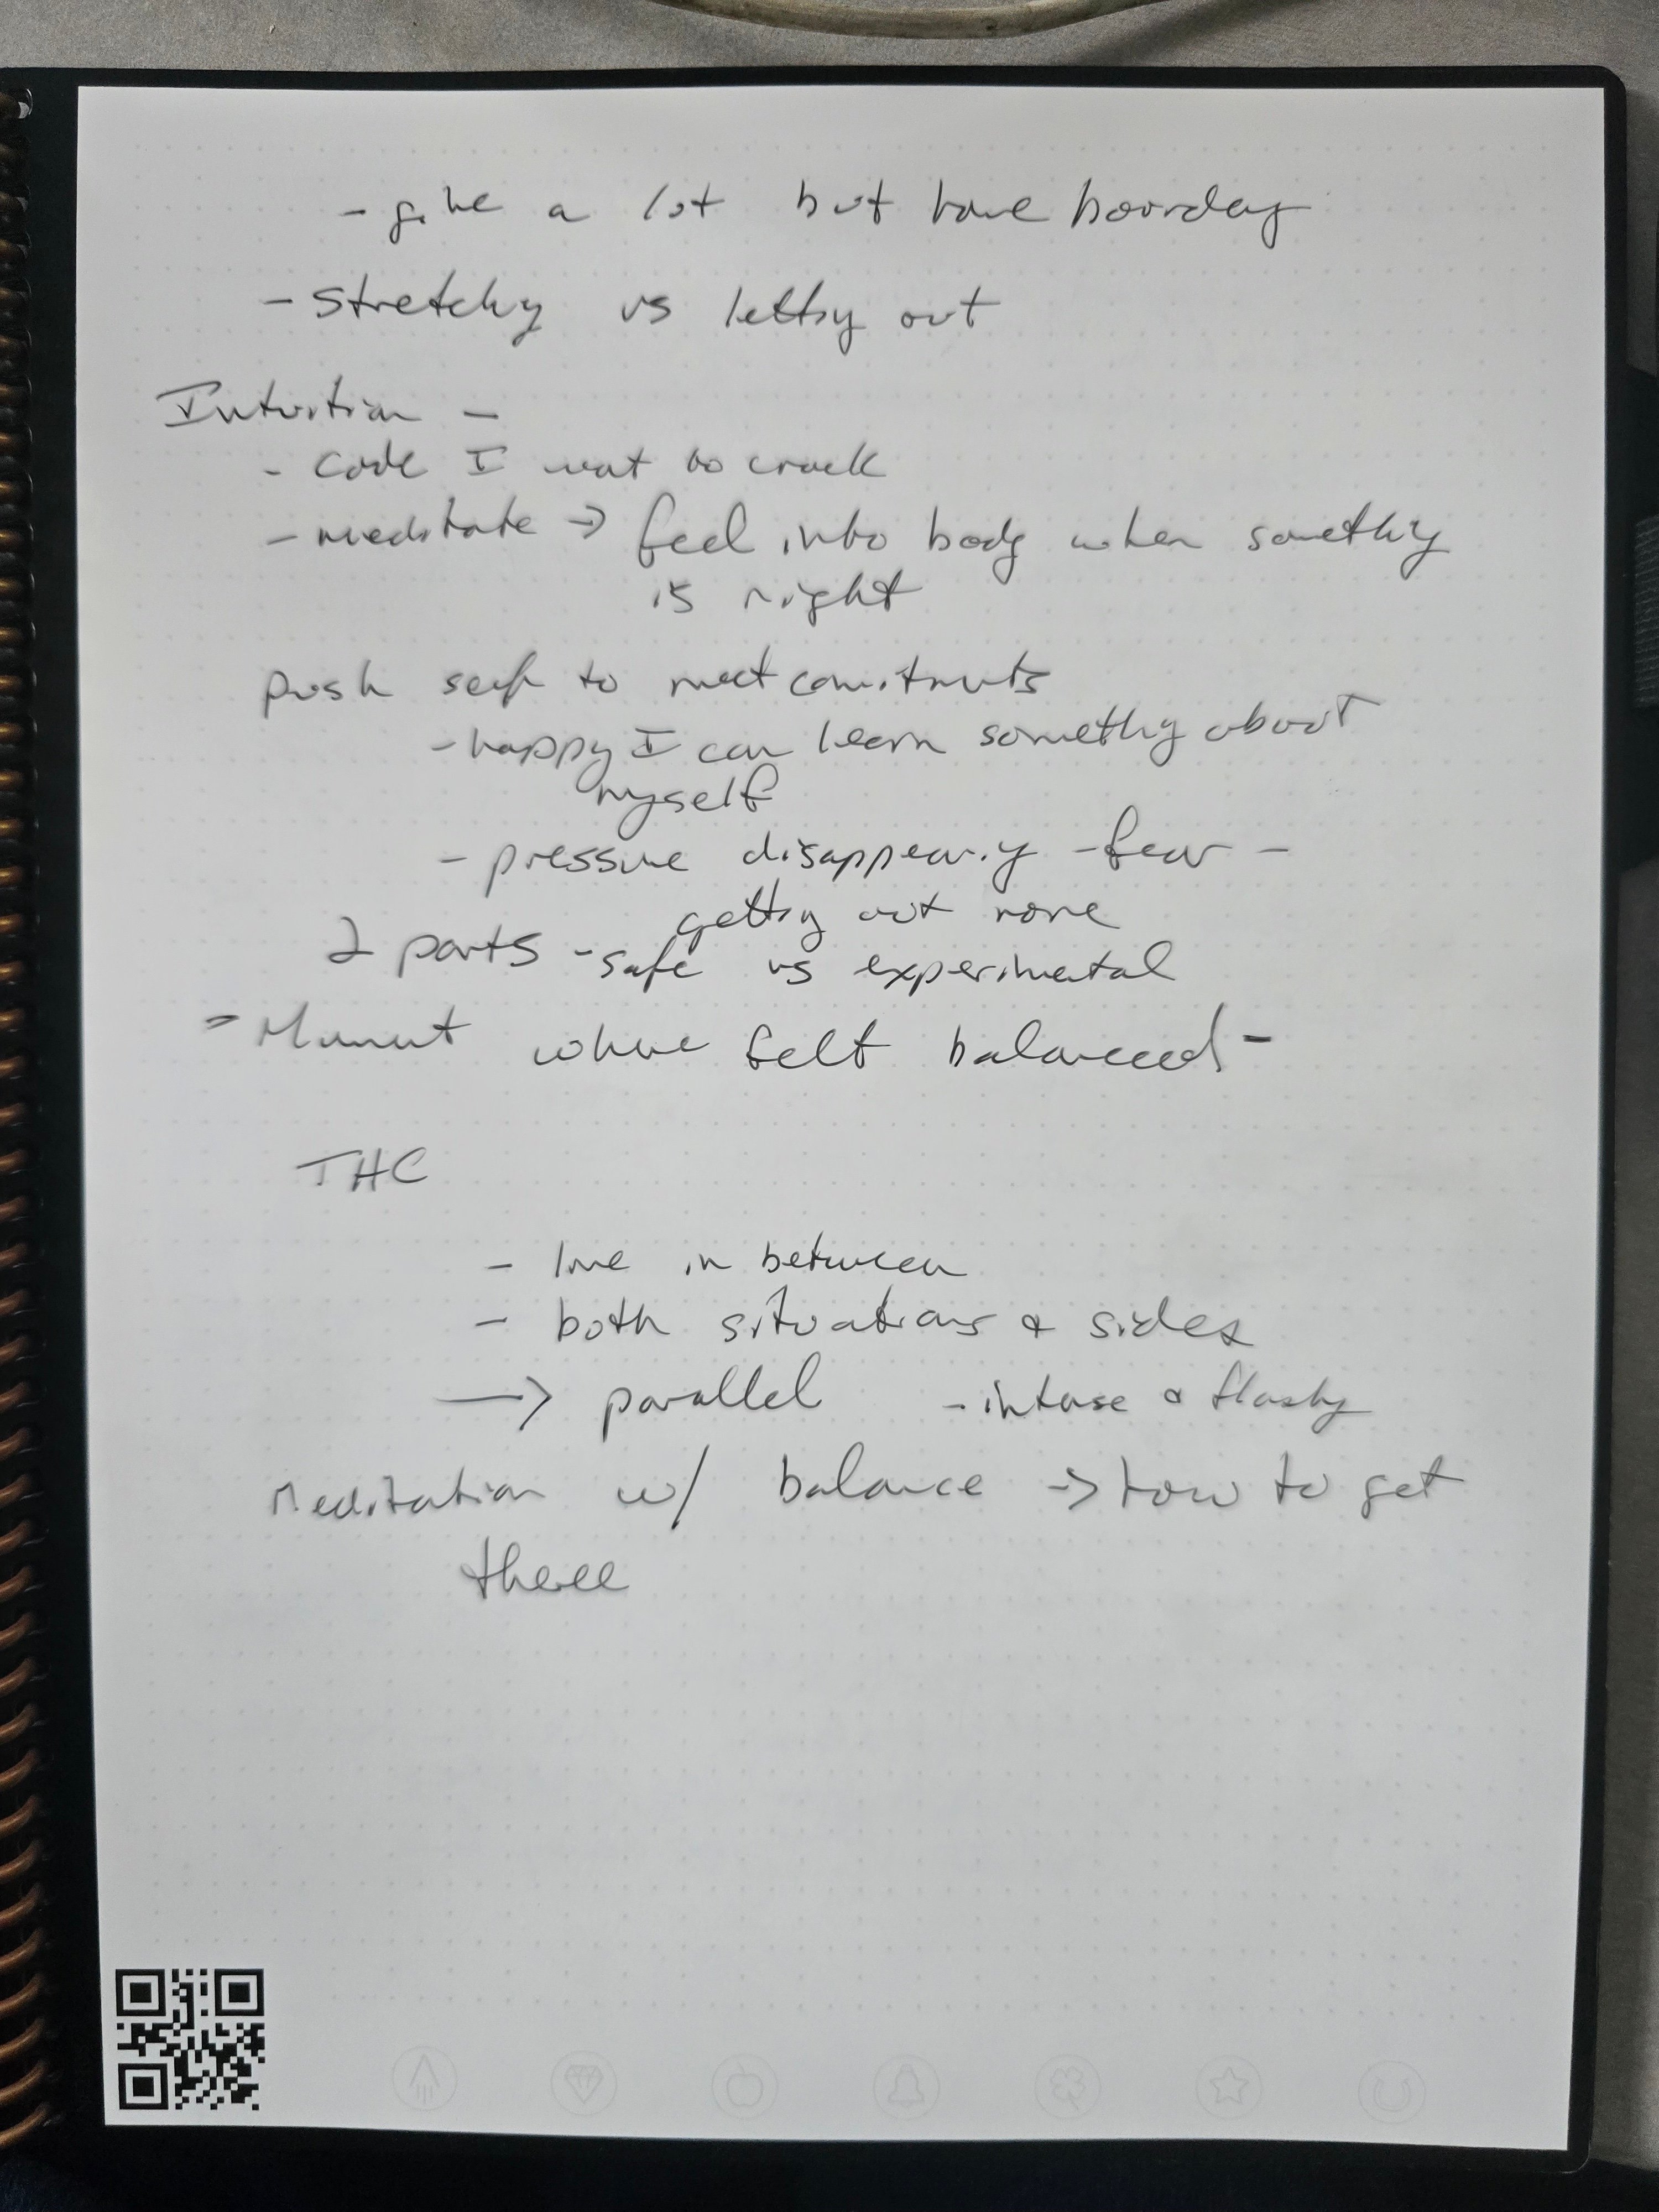 - give a lot but have boundary
- stretchy vs letting out
Intuition -
- code I want to crack
- meditate → feel into body when something
is right
push self to meet constructs
- happy I can learn something about
myself
- pressure disappearing - fear -
getting out more
2 parts - safe vs experimental
- Moment where felt balanced -
THC
- line in between
- both situations & sides
→ parallel - intense & flashy
Meditation w/ balance → how to get
there